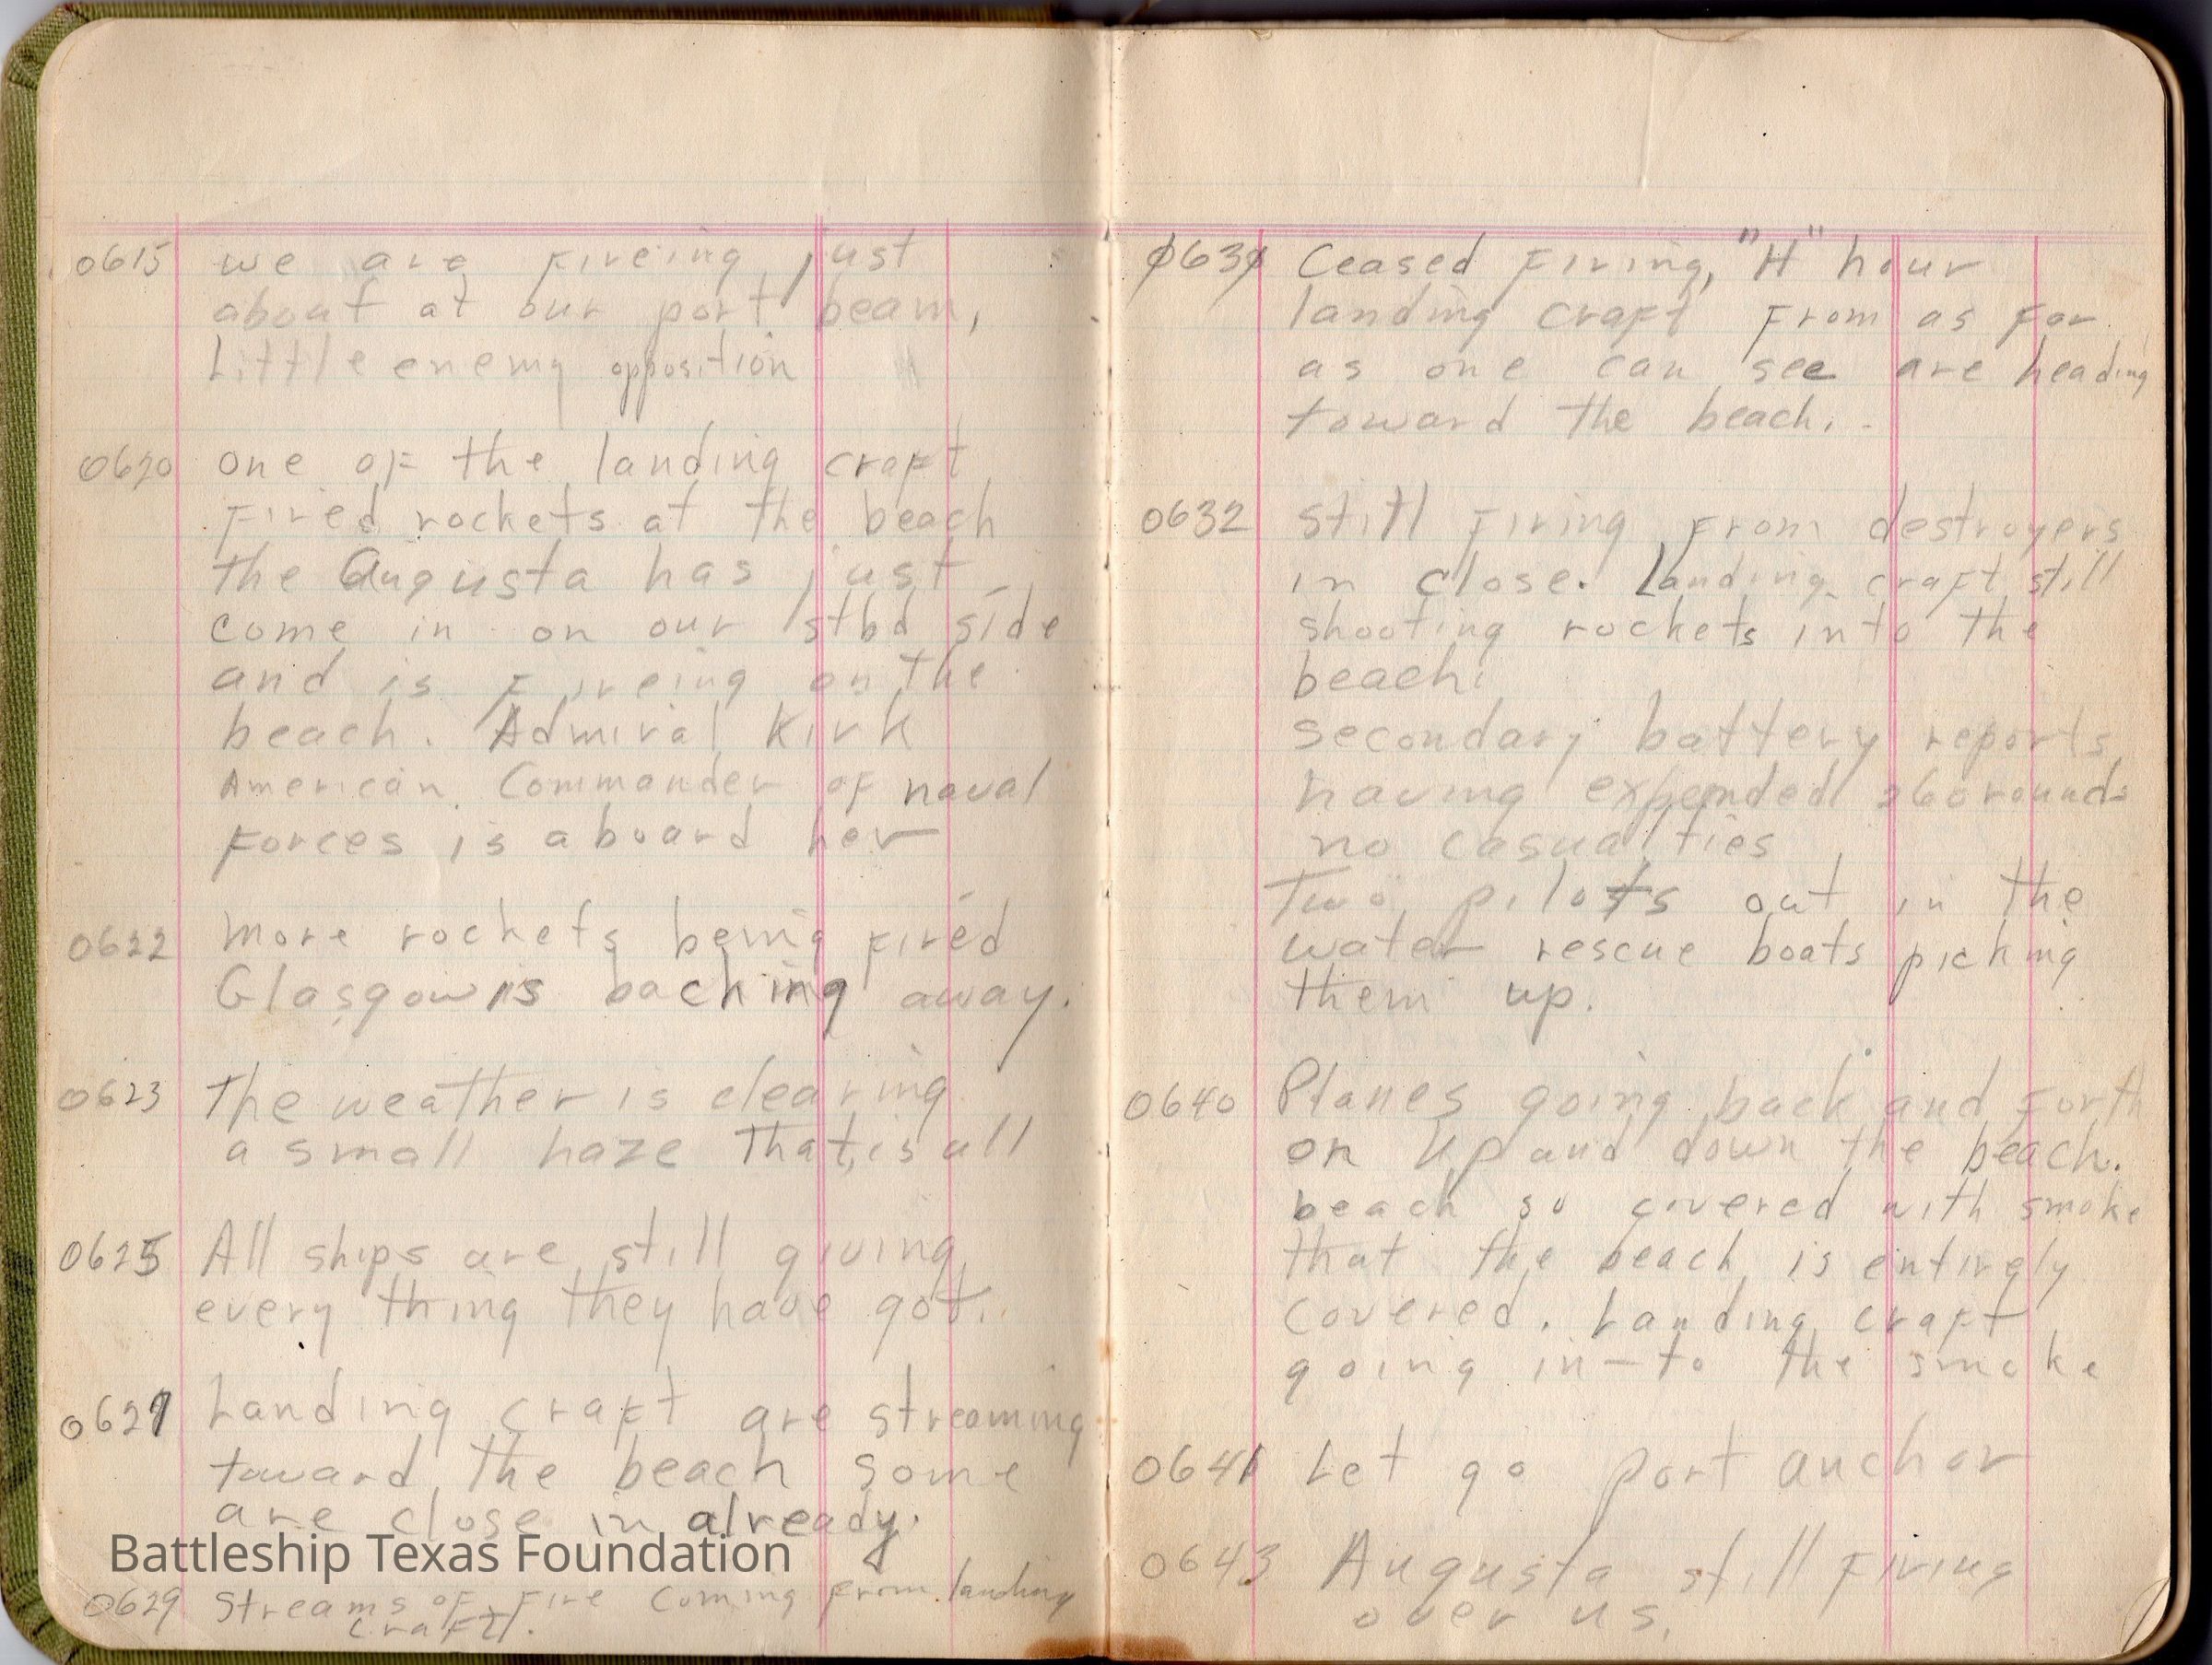 0615 we are fireing just
about at our port beam,
Little enemy opposition
0620 one of the landing craft
Fired rockets at the beach
the Augusta has just
come in on our stbd side
and is Fireing on the
beach. Admiral Kirk
American Commander of naval
Forces is aboard her
0622 more rockets being fired
Glasgow is backing away.
0623 The weather is clearing
a small haze that is all
0625 All ships are still giving
every thing they have got.
0627 Landing craft are streaming
toward the beach some
are close in already.
Battleship Texas Foundation
0629 Streams of Fire Coming From landing
craft.
0630 Ceased Firing, "H" hour
landing craft From as far
as one can see are heading
toward the beach.
0632 Still Firing From destroyers
in close. Landing craft still
shooting rockets into the
beach.
secondary battery reports
having expended 260 rounds
no casualties
Two pilots out in the
water rescue boats picking
them up.
0640 Planes going back and Forth
on up and down the beach.
beach so covered with smoke
that the beach is entirely
covered. Landing craft
going in-to the smoke
0641 Let go port anchor
0643 Augusta still Firing
over us.